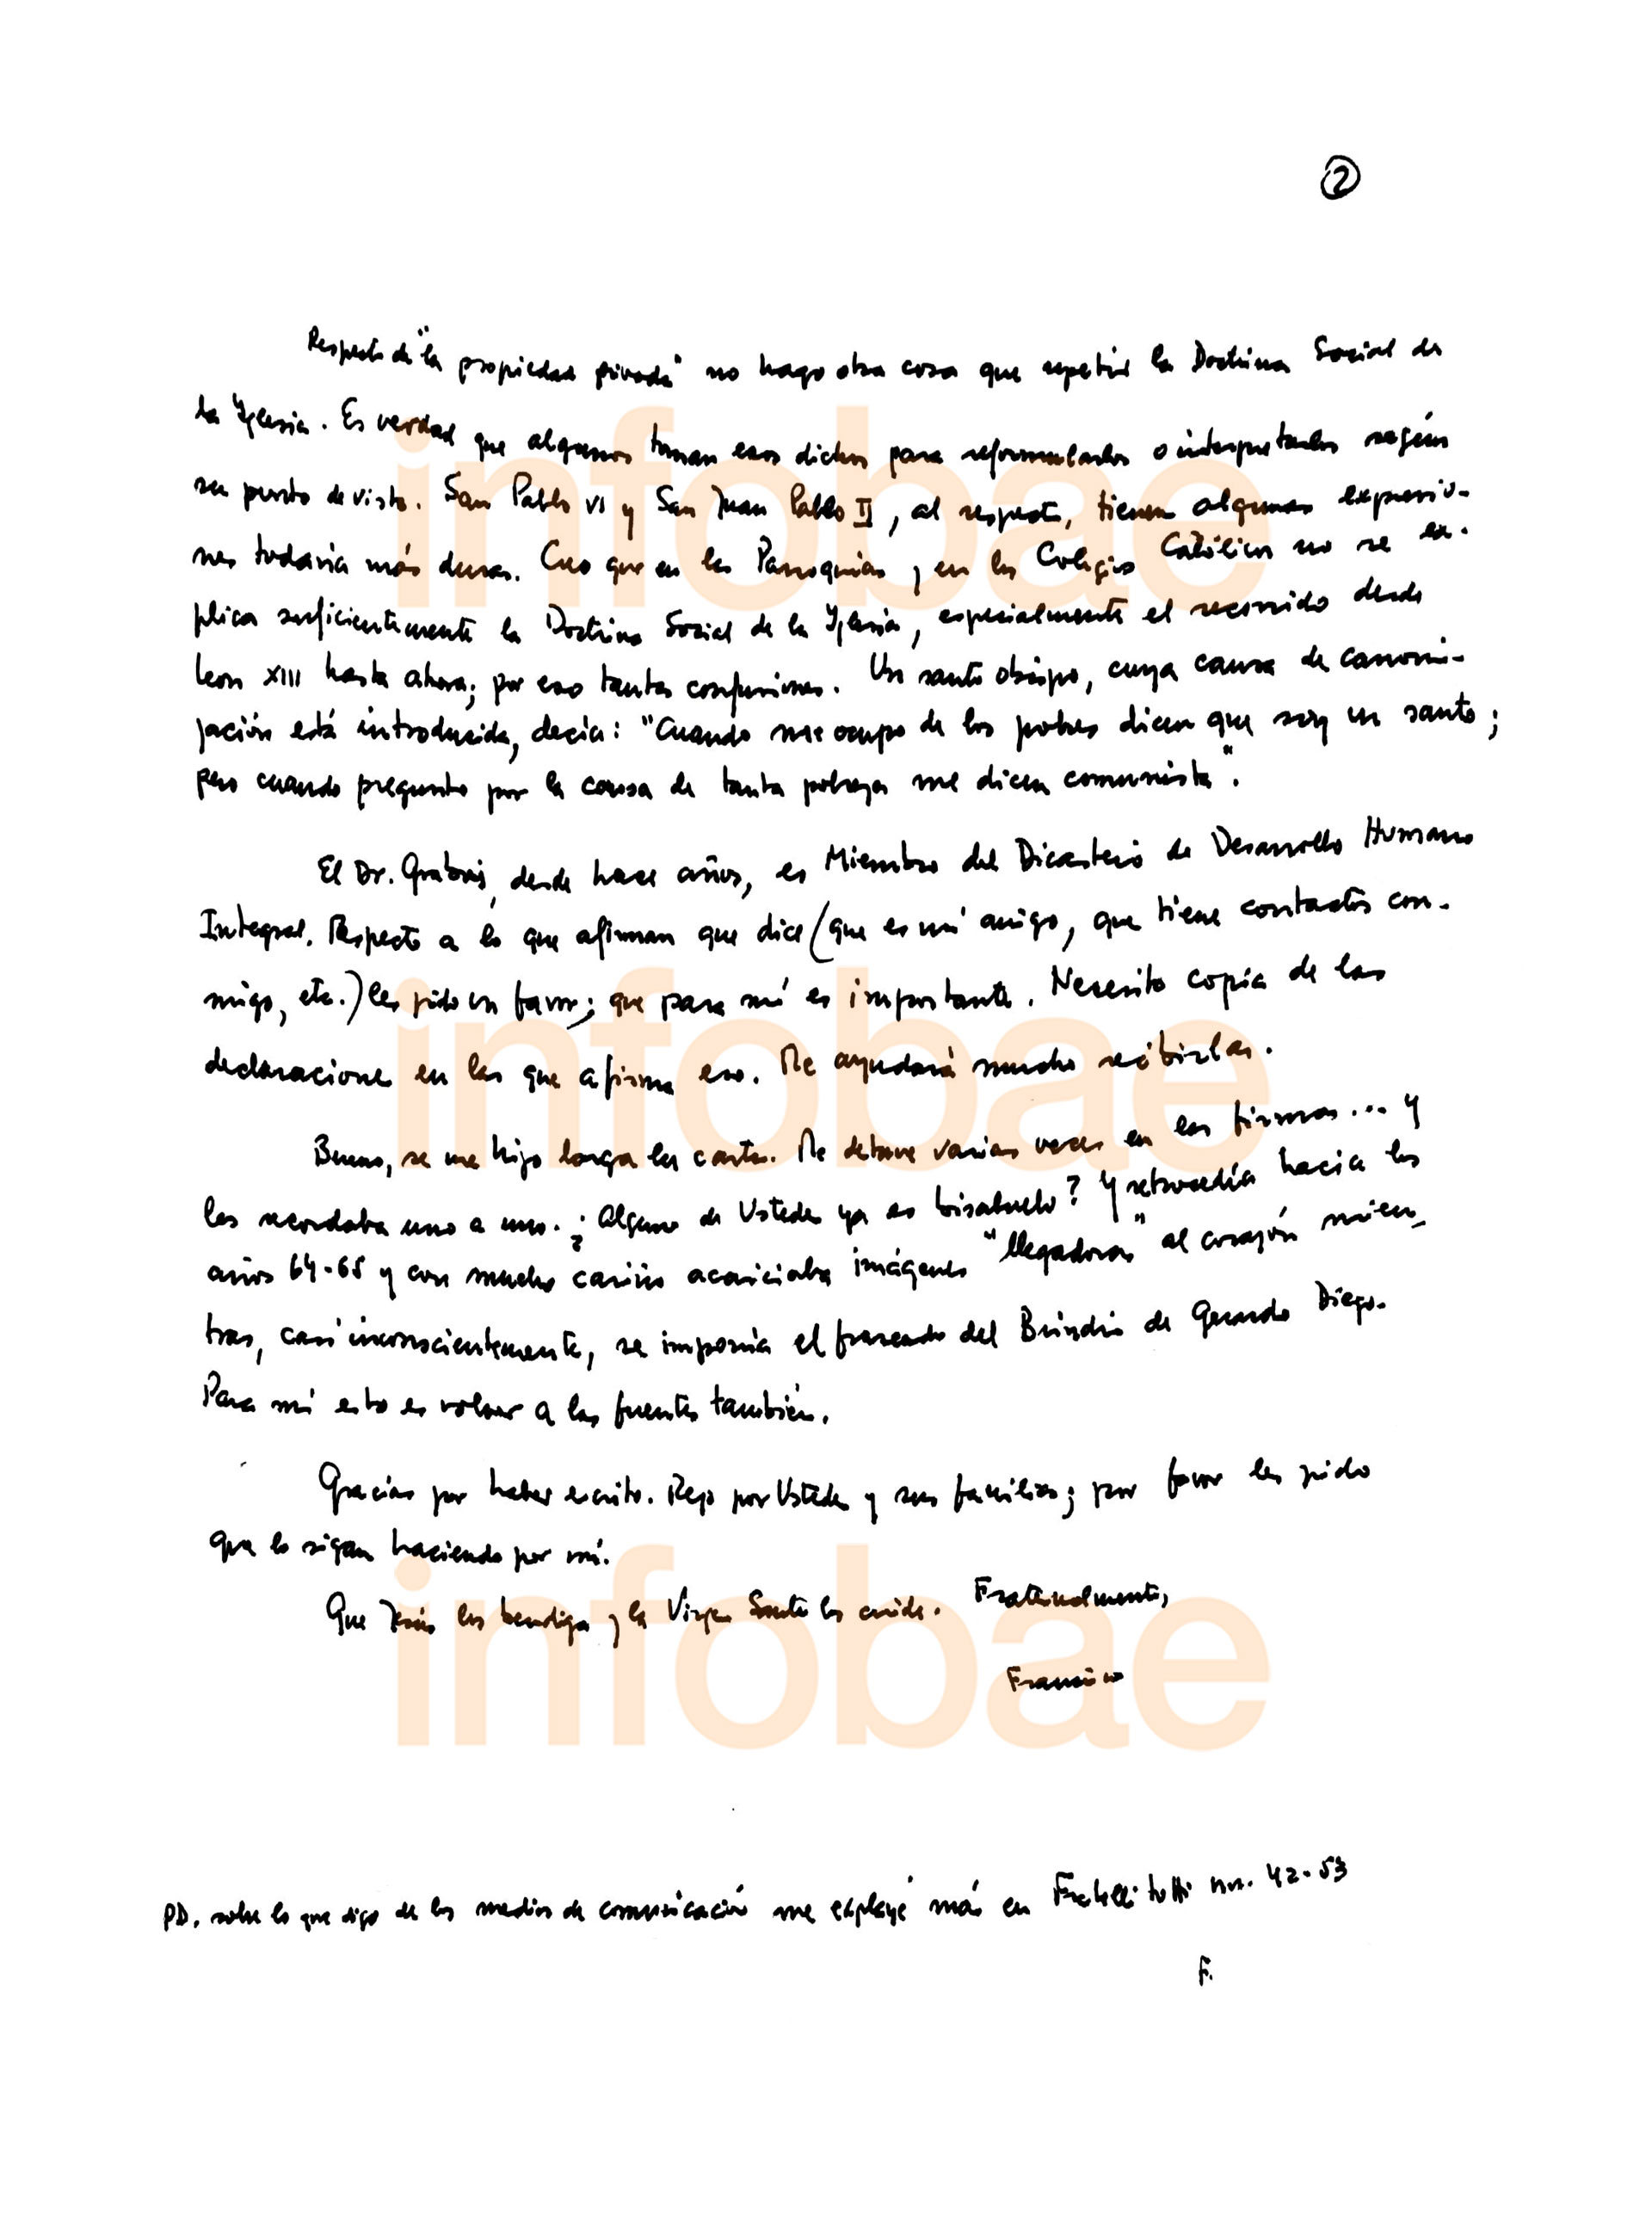 ②
Respecto de "la propiedad privada" no hago otra cosa que repetir la Doctrina Social de
la Iglesia. Es verdad que algunos toman esos dichos para reformularlos o interpretarlos según
su punto de vista. San Pablo VI y San Juan Pablo II, al respecto, tienen algunas expresio-
nes todavía más duras. Creo que en las Parroquias y en los Colegios Católicos no se ex-
plica suficientemente la Doctrina Social de la Iglesia, especialmente el recorrido desde
León XIII hasta ahora; por eso tantas confusiones. Un santo obispo, cuya causa de canoni-
zación está introducida, decía: "Cuando me ocupo de los pobres dicen que soy un santo;
pero cuando pregunto por la causa de tanta pobreza me dicen comunista".
El Dr. Grabois, desde hace años, es Miembro del Dicasterio de Desarrollo Humano
Integral. Respecto a lo que afirman que dice (que es mi amigo, que tiene contactos con-
migo, etc.) les pido un favor; que para mí es importante. Necesito copia de las
declaraciones en las que afirma eso. Me ayudará mucho recibirlas.
Bueno, se me hizo larga la carta. Me detuve varias veces en las firmas... y
los recordaba uno a uno. ¿Alguno de Ustedes ya es bisabuelo? Y retrocedía hacia los
años 64-65 y con mucho cariño acariciaba imágenes "llegadoras" al corazón mien-
tras, casi inconscientemente, se imponía el fraseado del Brindis de Gerardo Diego.
Para mí esto es volver a las fuentes también.
Gracias por haber escrito. Rezo por Ustedes y sus familias; por favor les pido
que lo sigan haciendo por mí.
Que Jesús los bendiga y la Virgen Santa los cuide. Fraternalmente,
Francisco
PD. sobre lo que digo de los medios de comunicación me explayé más en Fratelli tutti nn. 42-53
F.
infobae
infobae
infobae